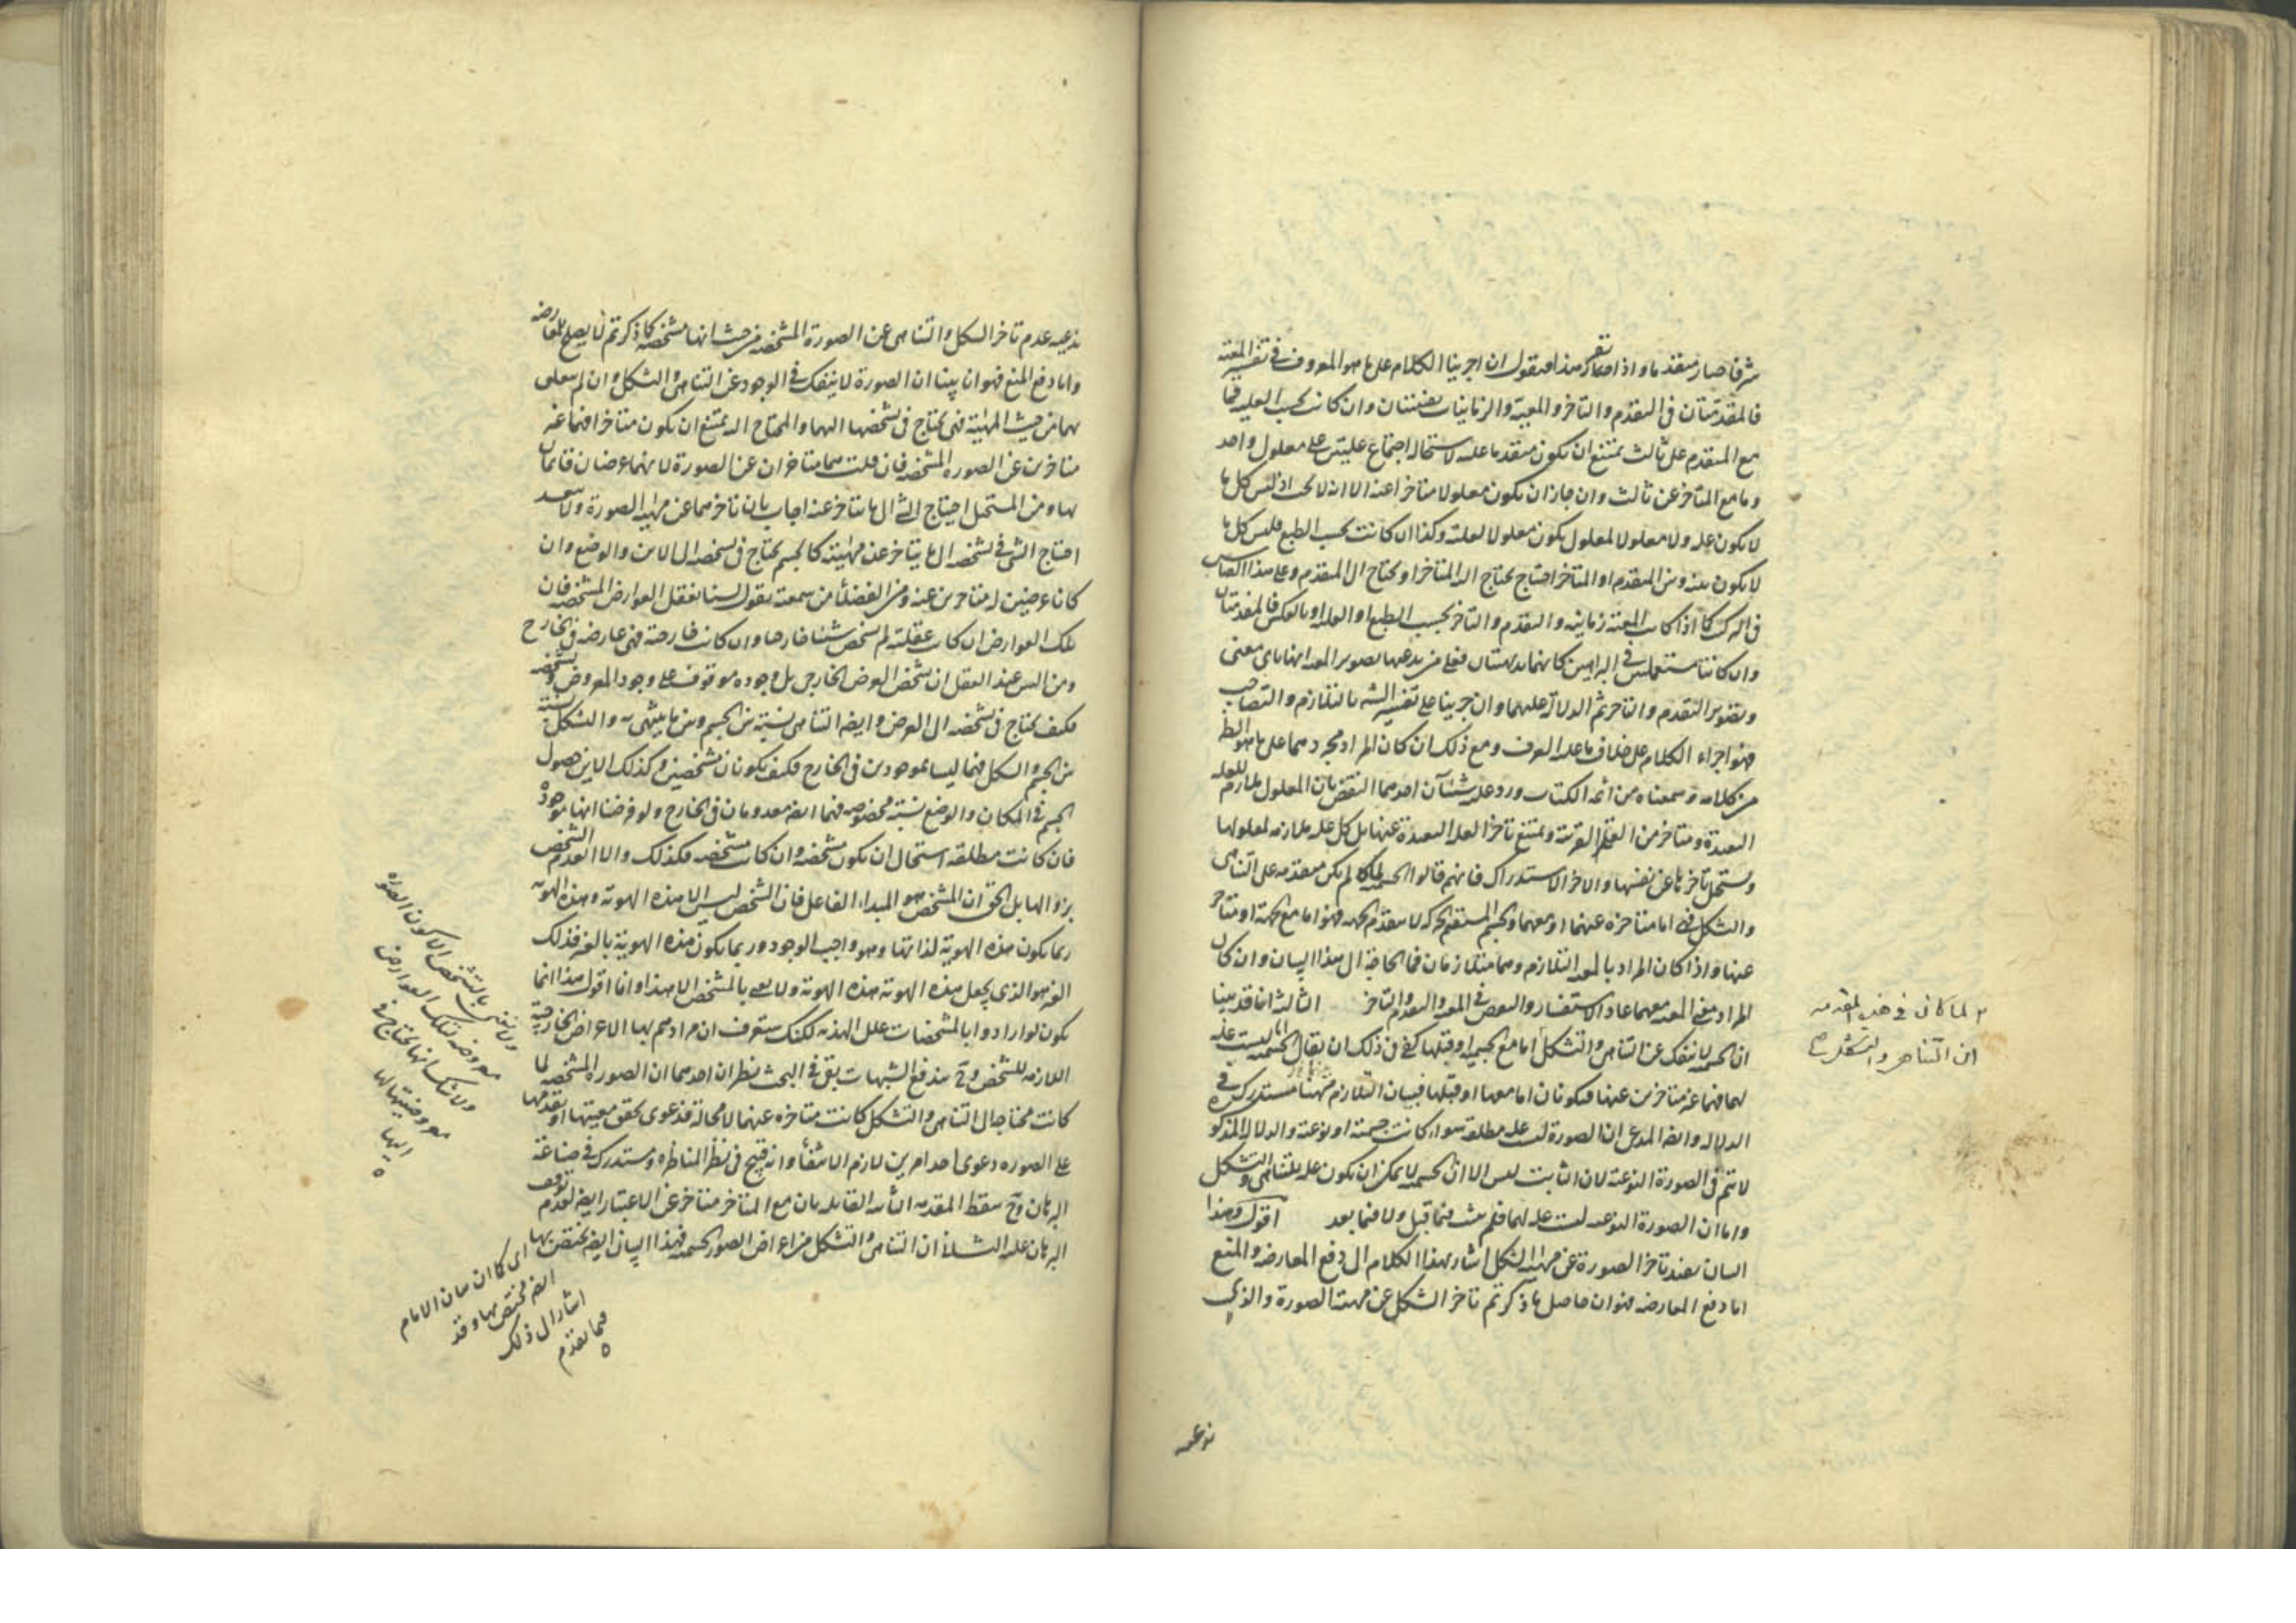 شرفا صار متقدما واذا تقرر هذا فنقول ان اجرينا الكلام على ما هو المعروف في تفسير المعية
فالمقدمتان في التقدم والتاخر والمعية والزمانيات يقينيتان وان كانت بحسب العلية فما
مع المتقدم على ثالث يمتنع ان يكون متقدما عليه لاستحالة اجتماع علتين على معلول واحد
وما مع المتاخر عن ثالث وان جاز ان يكون معلولا متاخرا عنه الا انه لا يجب اذ ليس كل ما
لا يكون علة ولا معلولا لمعلول يكون معلولا لعلته وكذا ان كانت بحسب الطبع فليس كل ما
لا يكون بينه وبين المتقدم او المتاخر احتياج يحتاج اليه المتاخر او يحتاج الى المتقدم وعلى هذا القياس
في المركب كما اذا كانت المعية زمانية والتقدم والتاخر بحسب الطبع او العلية او بالعكس فالمقدمتان
وان كانتا مستعملتين في البراهين كانهما بديهيتان فعلى من يدعيها تصوير المعية انها باي معنى
وتصوير التقدم والتاخر ثم الدلالة عليهما وان جرينا على تفسير الشه بالتلازم والتصاحب
فهو اجراء الكلام على خلاف ما عليه العرف ومع ذلك ان كان المراد مجردهما على ما هو الظ
من كلامه وسمعناه من ائمة الكتاب ورد عليه شيئان احدهما النقض بان المعلول ملازم للعلة
البعيدة ومتاخر من العلة القريبة ويمتنع تاخر العلة البعيدة عنها بل كل علة ملازمة لمعلولها
ويستحيل تاخرها عن نفسها والاخر الاستدراك فانهم قالوا الجسمية لما لم يكن متقدمة على التناهي
والتشكل فهي اما متاخرة عنهما او معهما والجسم المستقيم الحركة لا يتقدم الجهة فهو اما مع الجهة او متاخر
عنها واذا كان المراد بالمعية التلازم وهما متلازمان فما الحاجة الى هذا البيان وان كان
المراد معنى المعية معهما عاد الاستفسار والنقض في المعية والتقدم والتاخر الثالث انا قد بينا
ان الجسمية لا تنفك عن التناهي والتشكل اما مع الجسمية او قبلها كفى في ذلك ان يقال الجسمية ليست علة
لهما فهما غير متاخرين عنها فيكونان اما معها او قبلها فبيان التلازم ههنا مستدرك في
الدلالة وايضا المدعى ان الصورة ليست علة مطلقة سواء كانت جسمية او نوعية والدلالة المذكورة
لا تتم في الصورة النوعية لان الثابت ليس الا ان الجسمية لا يمكن ان يكون علة للتناهي والتشكل
واما ان الصورة النوعية ليست علة لهما فلم يثبت فيما قبل ولا فيما بعد اقول وهذا
البيان يفيد تاخر الصورة عن مهية الشكل اشار بهذا الكلام الى دفع المعارضة والمنع
اما دفع المعارضة فهو ان حاصل ما ذكرتم تاخر الشكل عن مهية الصورة والذي
ان التناهي والتشكل
ندعيه عدم تاخر الشكل والتناهي عن الصورة المشخصة من حيث انها مشخصة فما ذكرتم لا يصلح للمعارضة
واما دفع المنع فهو انا بينا ان الصورة لا ينفك في الوجود عن التناهي والتشكل وان لم يتعلق
بهما من حيث المهية فهي تحتاج في تشخصها اليهما والمحتاج اليه يمتنع ان يكون متاخرا فهما غير
متاخرين عن الصورة المشخصة فان قلت هما متاخران عن الصورة لانهما عرضان قائمان
بها ومن المستحيل احتياج الشئ الى ما يتاخر عنه اجاب بان تاخرهما عن مهية الصورة ولا يبعد
احتياج الشئ في تشخصه الى ما يتاخر عن مهيته كالجسم يحتاج في تشخصه الى الاين والوضع وان
كانا عرضين له متاخرين عنه ومن الفضلاء من سمعته يقول لسنا نعقل العوارض المشخصة فان
تلك العوارض ان كانت عقلية لم تشخص شيئا خارجا وان كانت خارجة فهي عارضة في الخارج
ومن البين عند العقل ان تشخص العرض الخارجي بل وجوده موقوف على وجود المعروض وتشخصه
فكيف يحتاج في تشخصه الى العرض وايضا التناهي نسبة بين الجسم وبين ما ينتهي به والتشكل نسبة
بين الجسم والشكل فهما ليسا بموجودين في الخارج فكيف يكونان مشخصين وكذلك الاين حصول
الجسم في المكان والوضع نسبة مخصوصة فهما ايضا معدومان في الخارج ولو فرضنا انها موجودة
فان كانت مطلقة استحال ان يكون مشخصة وان كانت مشخصة فكذلك والا انعدم الشخص
بزوالها بل الحق ان المشخص هو المبداء الفاعل فان الشخص ليس الا هذه الهوية وهذه الهوية
ربما يكون هذه الهوية لذاتها وهو واجب الوجود وربما يكون هذه الهوية بالغير فذلك
الغير هو الذي يجعل هذه الهوية هذه الهوية ولا نعني بالمشخص الا هذا وانا اقول هذا انما
يكون لو ارادوا بالمشخصات علل الهذية لكنك ستعرف ان مرادهم بها الاعراض الخارجية
اللازمة للشخص وح يندفع الشبهات بقي في البحث نظران احدهما ان الصورة المشخصة لما
كانت محتاجة الى التناهي والتشكل كانت متاخرة عنهما لا محالة فدعوى تحقق معيتها او تقدمها
على الصورة دعوى احد امرين لازم الانتفاء وانه قبيح في نظر المناظرة ومستدرك في صناعة
البرهان وح سقط المقدمة الثانية القائلة بان مع المتاخر متاخر عن الاعتبار ايضا لعدم توقف
البرهان عليه الثاني ان التناهي والتشكل من اعراض الصورة الجسمية فهذا البيان ايضا يختص بها
ولا نعني بالتشخص الا كون الصورة
معروضة لتلك العوارض
ولا شك انها تحتاج في
معروضيتها لها
اليها
اي كما ان بيان الامام
ايضا مختص بها وقد
اشار الى ذلك
فيما تقدم